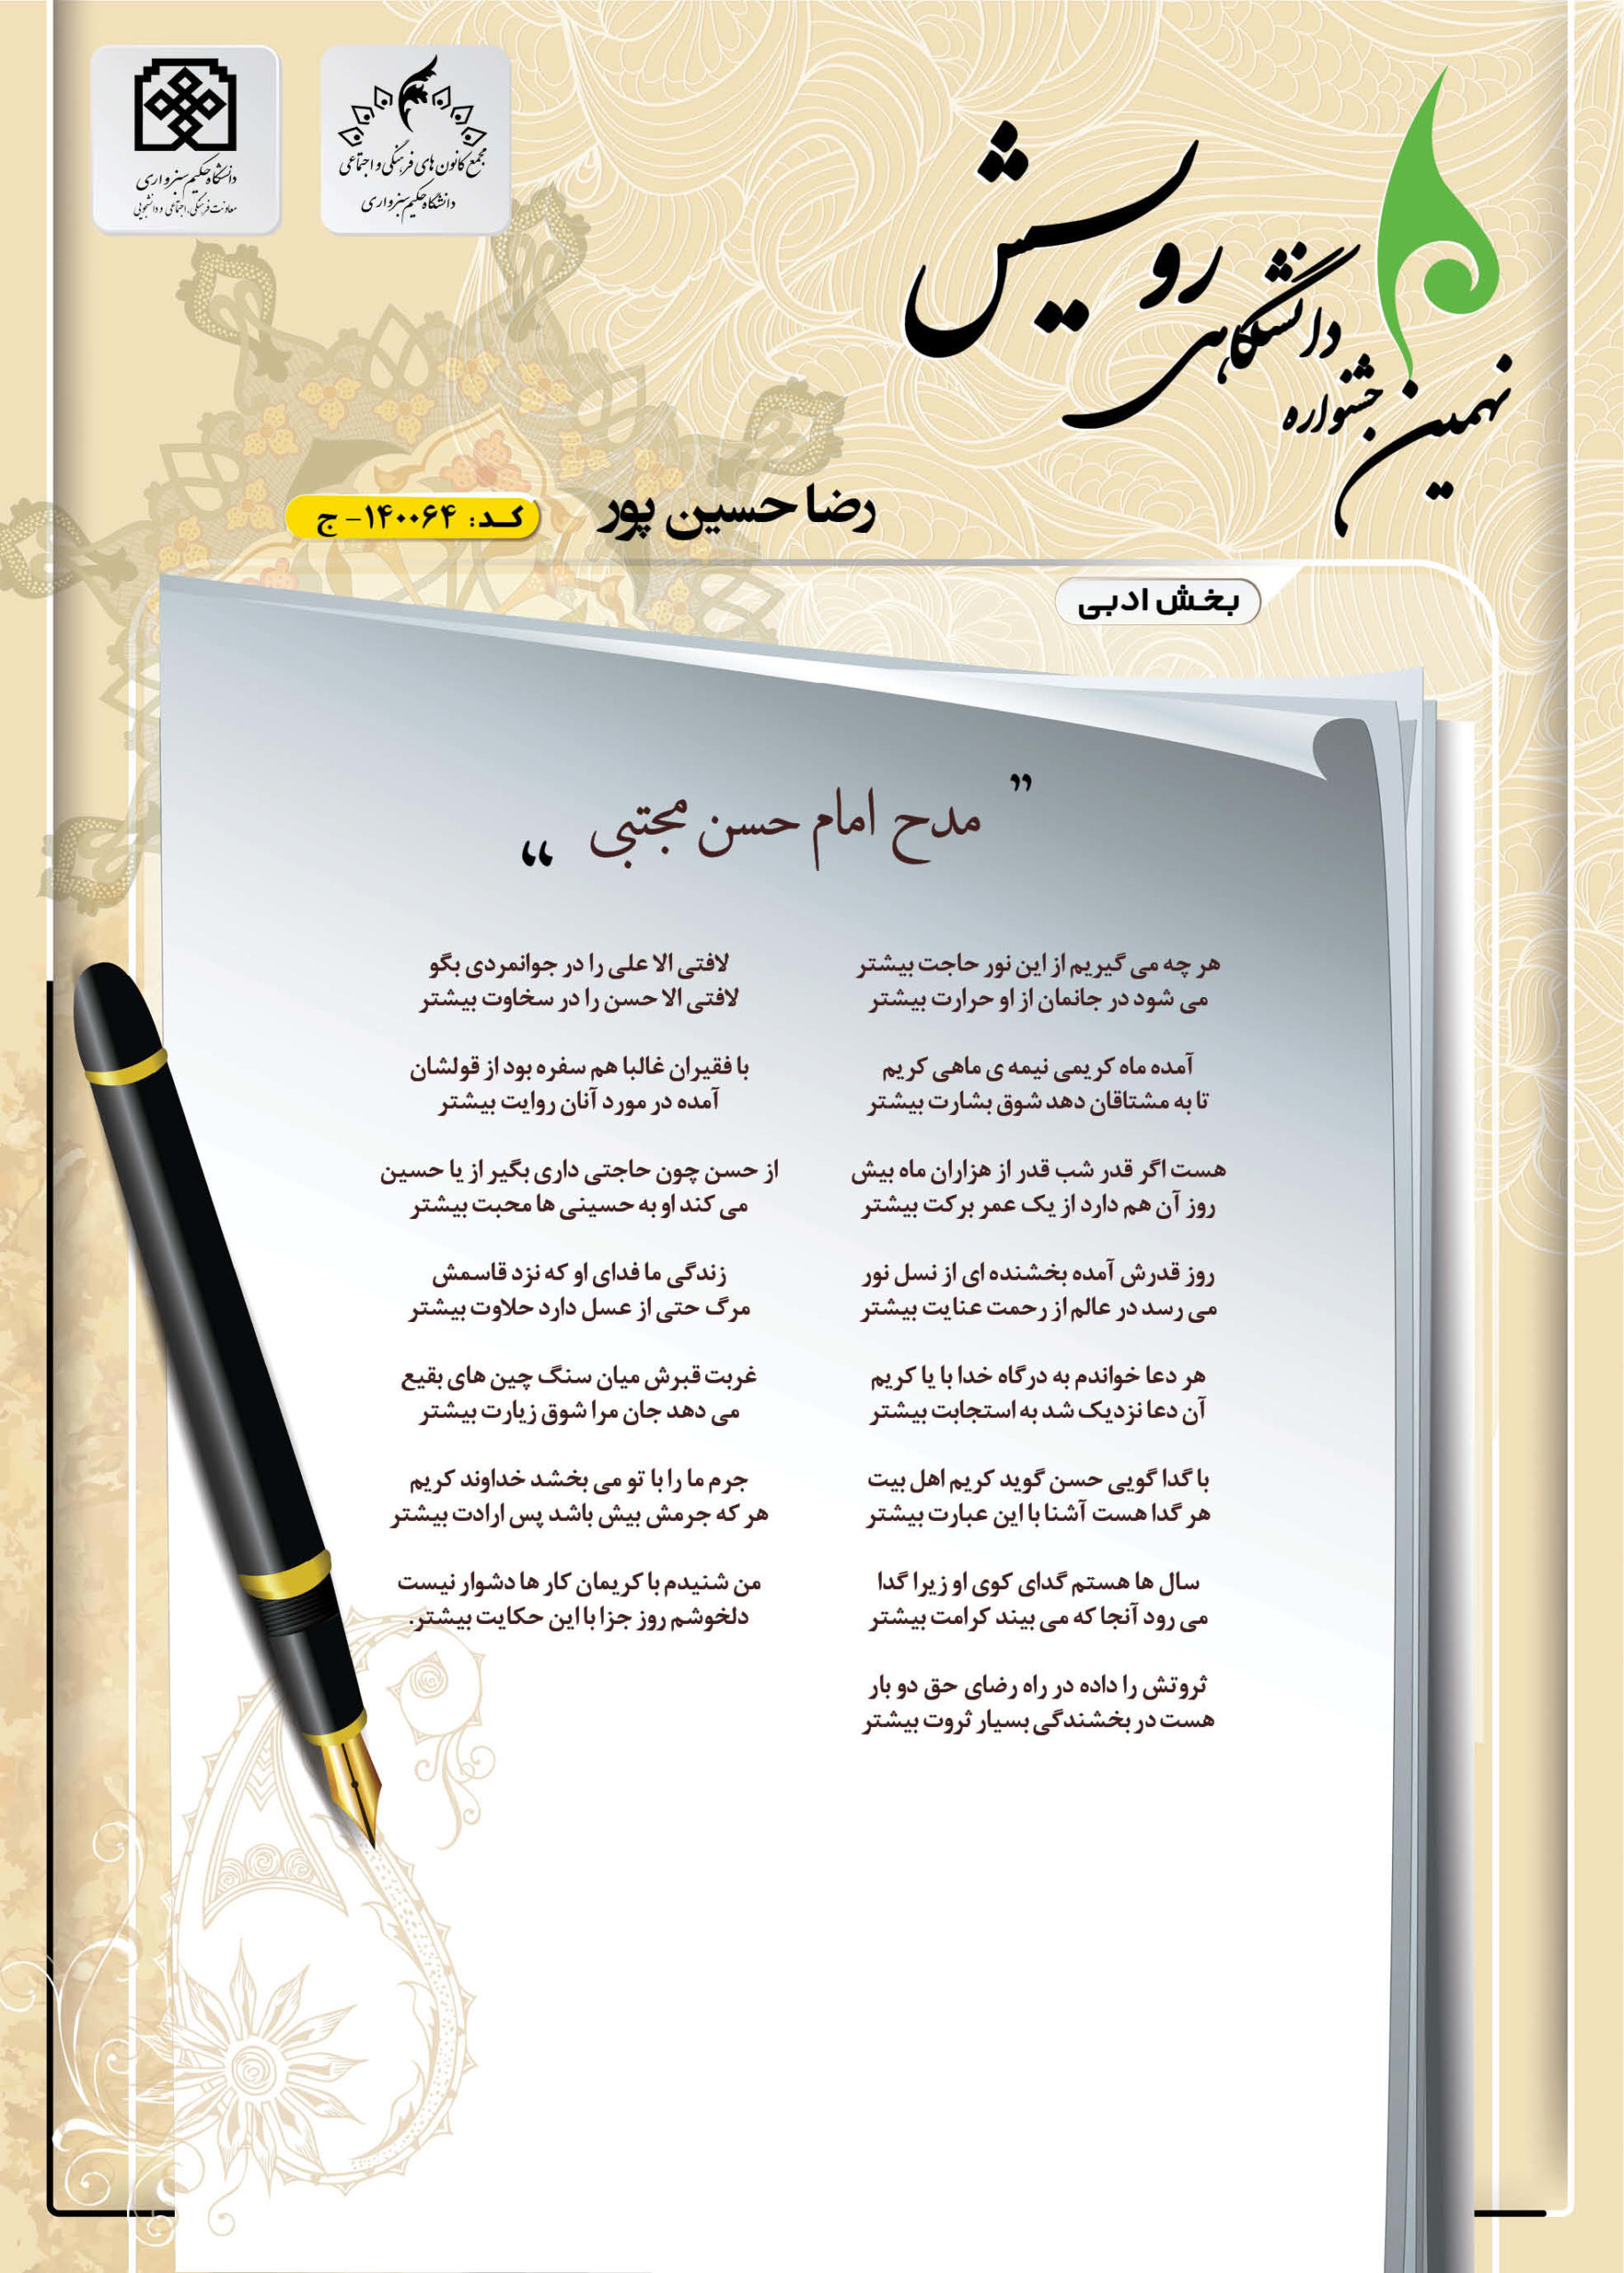 دانشگاه حکیم سبزواری
معاونت فرهنگی، اجتماعی و دانشجویی
مجمع کانون های فرهنگی و اجتماعی
دانشگاه حکیم سبزواری
نهمین جشنواره دانشگاهی رویش
رضا حسین پور
کد: ۱۴۰۰۶۴- ج
بخش ادبی
” مدح امام حسن مجتبی “
هر چه می گیریم از این نور حاجت بیشتر
می شود در جانمان از او حرارت بیشتر
آمده ماه کریمی نیمه ی ماهی کریم
تا به مشتاقان دهد شوق بشارت بیشتر
هست اگر قدر شب قدر از هزاران ماه بیش
روز آن هم دارد از یک عمر برکت بیشتر
روز قدرش آمده بخشنده ای از نسل نور
می رسد در عالم از رحمت عنایت بیشتر
هر دعا خواندم به درگاه خدا با یا کریم
آن دعا نزدیک شد به استجابت بیشتر
با گدا گویی حسن گوید کریم اهل بیت
هر گدا هست آشنا با این عبارت بیشتر
سال ها هستم گدای کوی او زیرا گدا
می رود آنجا که می بیند کرامت بیشتر
ثروتش را داده در راه رضای حق دو بار
هست در بخشندگی بسیار ثروت بیشتر
لافتی الا علی را در جوانمردی بگو
لافتی الا حسن را در سخاوت بیشتر
با فقیران غالبا هم سفره بود از قولشان
آمده در مورد آنان روایت بیشتر
از حسن چون حاجتی داری بگیر از یا حسین
می کند او به حسینی ها محبت بیشتر
زندگی ما فدای او که نزد قاسمش
مرگ حتی از عسل دارد حلاوت بیشتر
غربت قبرش میان سنگ چین های بقیع
می دهد جان مرا شوق زیارت بیشتر
جرم ما را با تو می بخشد خداوند کریم
هر که جرمش بیش باشد پس ارادت بیشتر
من شنیدم با کریمان کار ها دشوار نیست
دلخوشم روز جزا با این حکایت بیشتر.